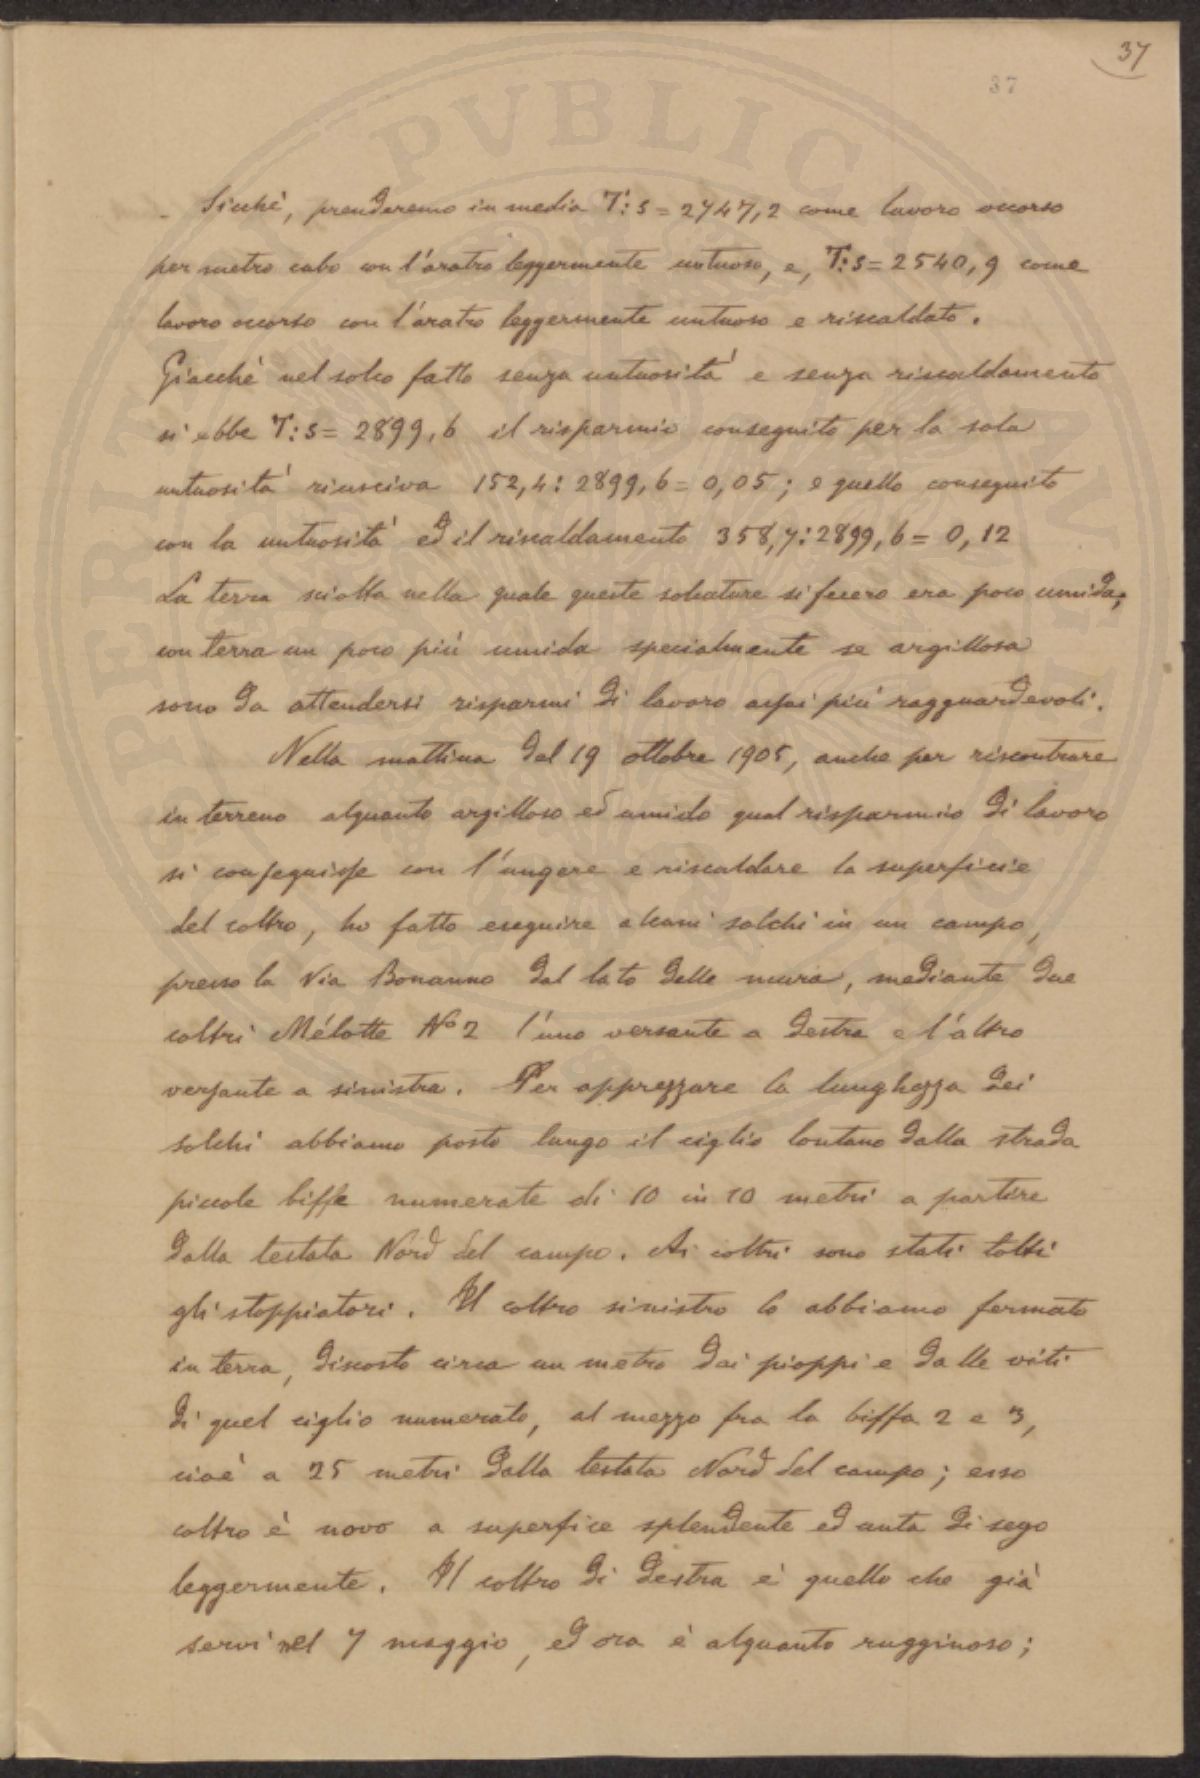 37
37
Sicchè, prenderemo in media T:s = 2747,2 come lavoro occorso
per metro cubo con l'aratro leggermente untuoso, e, T:s = 2540,9 come
lavoro occorso con l'aratro leggermente untuoso e riscaldato.
Giacchè nel solco fatto senza untuosità e senza riscaldamento
si ebbe T:s = 2899,6 il risparmio conseguito per la sola
untuosità riusciva 152,4 : 2899,6 = 0,05 ; e quello conseguito
con la untuosità ed il riscaldamento 358,7 : 2899,6 = 0,12
La terra sciolta nella quale queste solcature si fecero era poco umida;
con terra un poco più umida specialmente se argillosa
sono da attendersi risparmi di lavoro assai più ragguardevoli.
Nella mattina del 19 ottobre 1905, anche per riscontrare
in terreno alquanto argilloso ed umido qual risparmio di lavoro
si conseguisse con l'ungere e riscaldare la superficie
del coltro, ho fatto eseguire alcuni solchi in un campo,
presso la Via Bonanno dal lato delle mura, mediante due
coltri Mélotte No 2 l'uno versante a destra e l'altro
versante a sinistra. Per apprezzare la lunghezza dei
solchi abbiamo posto lungo il ciglio lontano dalla strada
piccole biffe numerate di 10 in 10 metri a partire
dalla testata Nord del campo. Ai coltri sono stati tolti
gli stoppiatori. Il coltro sinistro lo abbiamo fermato
in terra, discosto circa un metro dai pioppi e dalle viti
di quel ciglio numerato, al mezzo fra la biffa 2 e 3,
cioè a 25 metri dalla testata Nord del campo; esso
coltro è novo a superfice splendente ed unta di sego
leggermente. Il coltro di destra è quello che già
servì nel 7 maggio, ed ora è alquanto rugginoso;
PERITI PVBLIC